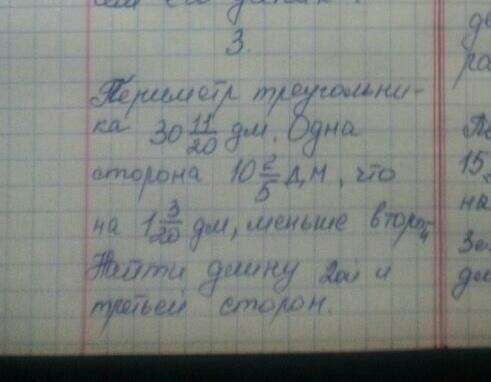 3.
Периметр треугольни-
ка 30 11/20 дм. Одна
сторона 10 2/5 дм, что
на 1 3/20 дм, меньше второй
Найти длину 2ой и
третьей сторон.